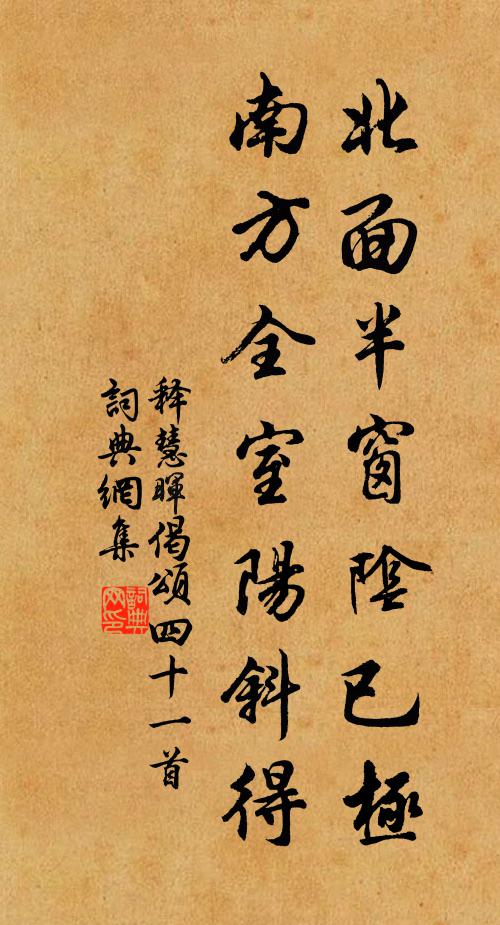 北面半窗陰已極
南方全室陽斜得
释慧暉偈頌四十一首
詞典網集
詞典网印